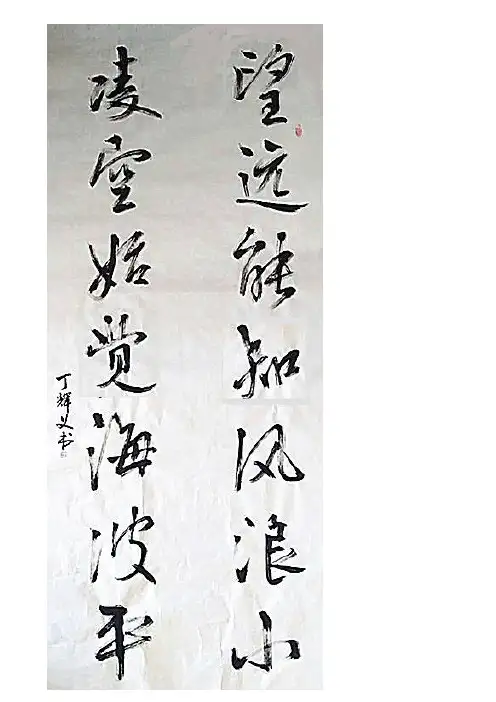 望远能知风浪小
凌空始觉海波平
丁辉义书